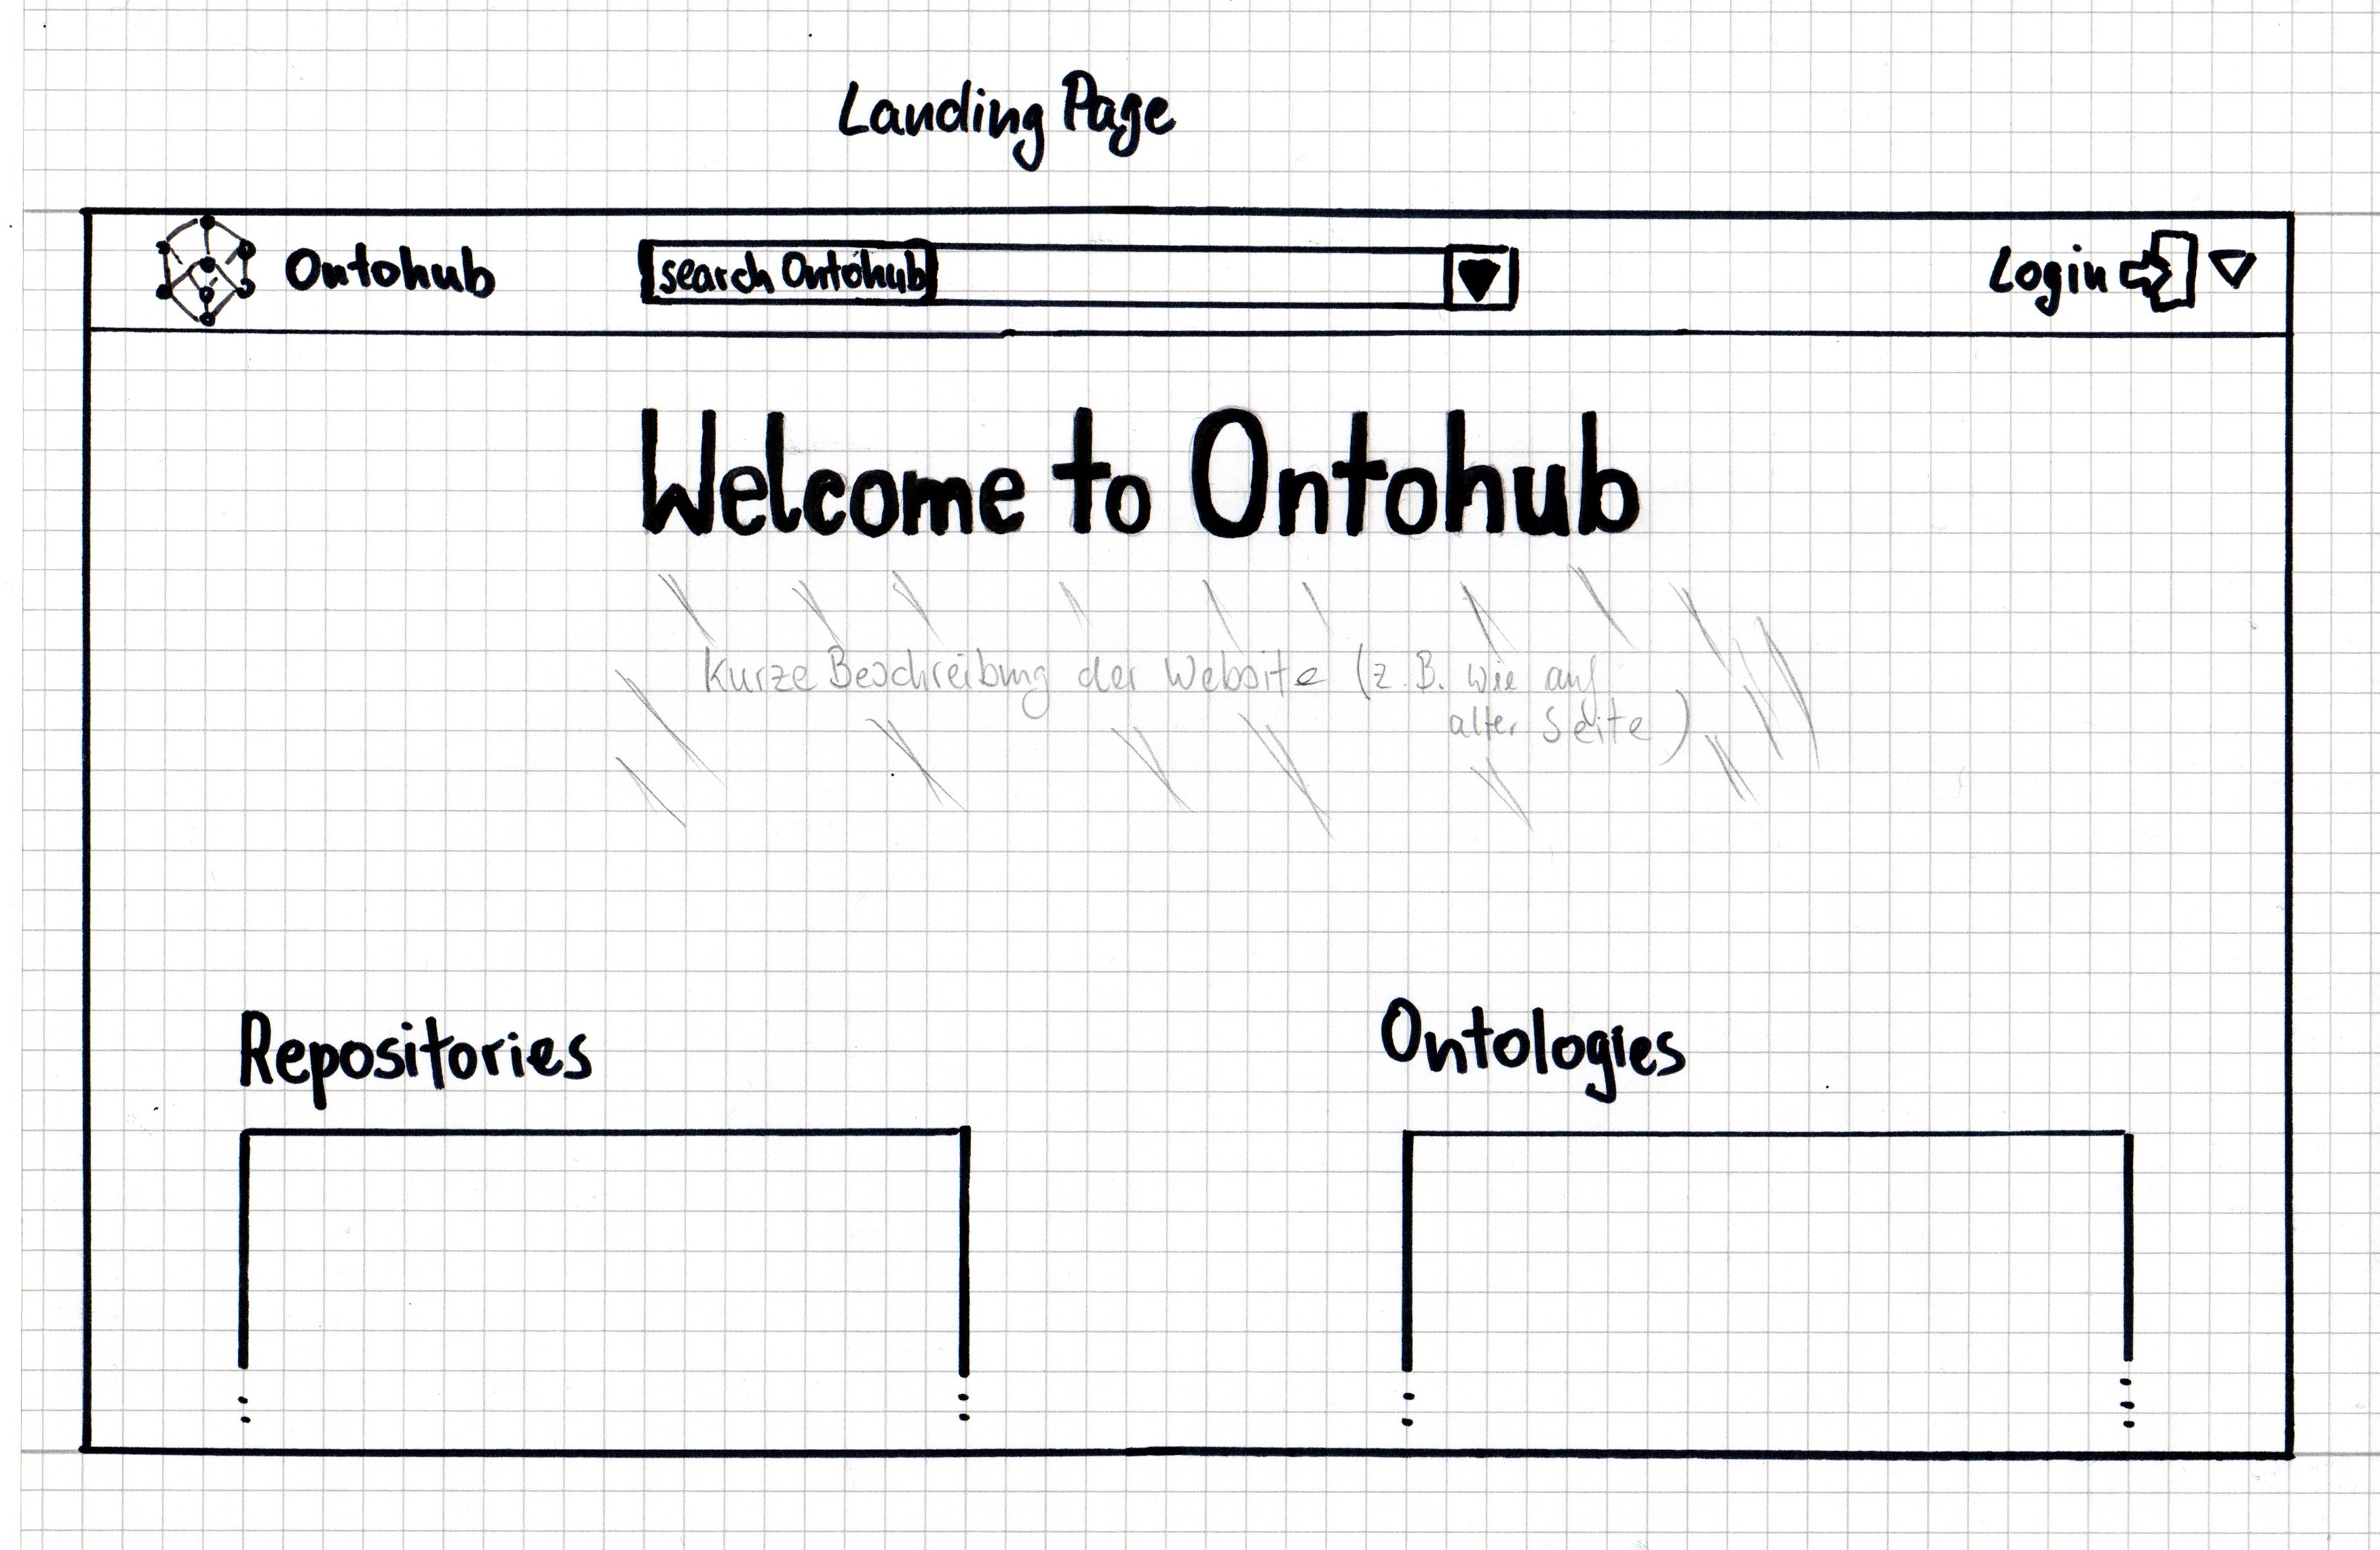 Landing Page
Ontohub
search Ontohub
Login
Welcome to Ontohub
Kurze Beschreibung der Website (z.B. wie auf
alter Seite)
Repositories
Ontologies